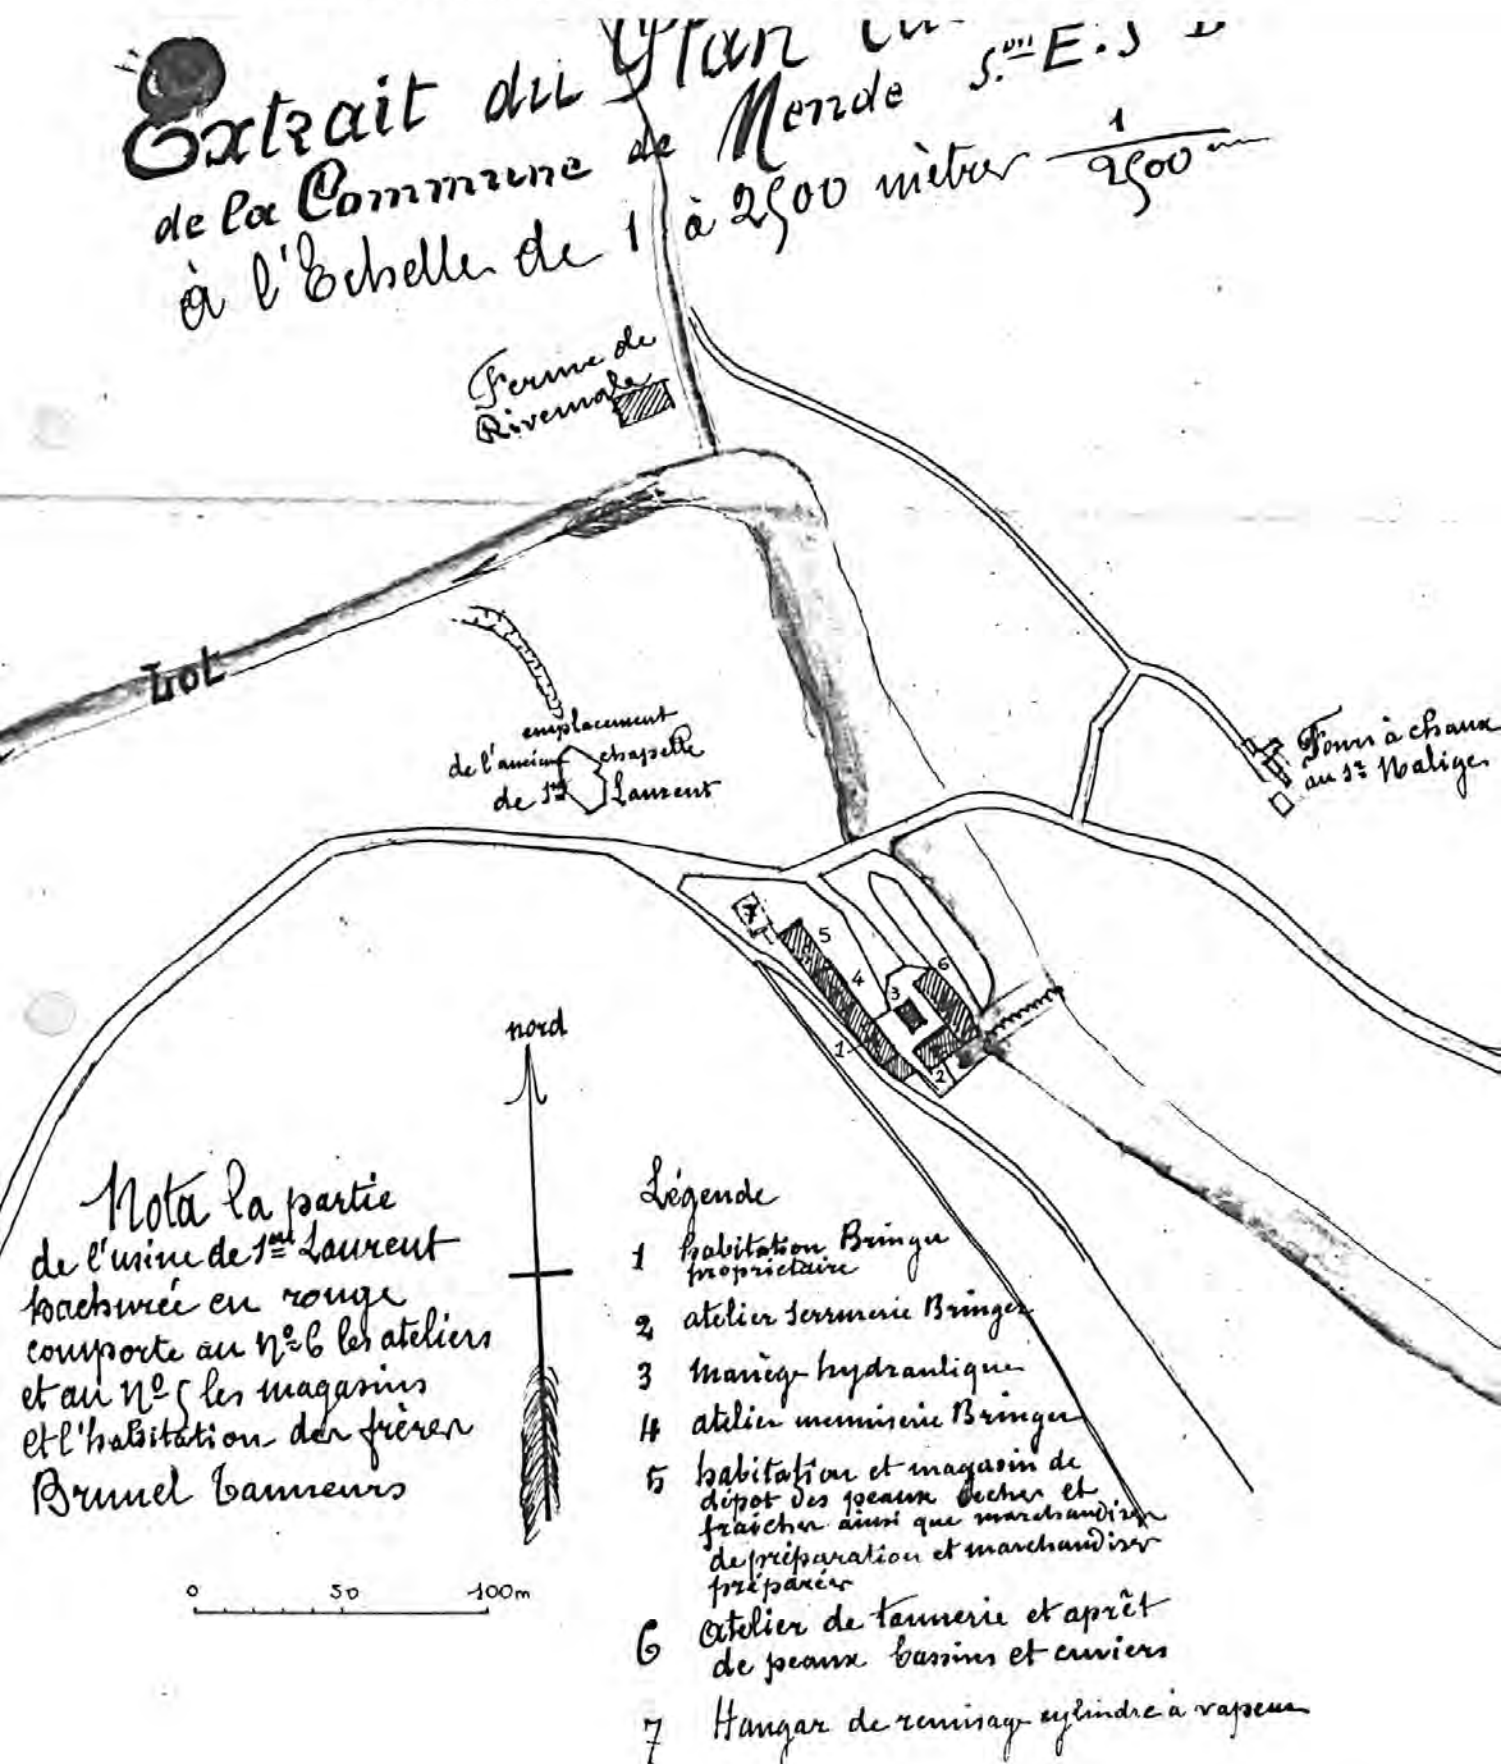 Extrait du Plan
de la Commune de Mende S.on E.S
à l'Echelle de 1 à 2500 mètres 1/2500 m
Ferme de
Rivemale
Lot
emplacement
de l'ancienne chapelle
de St Laurent
Fours à chaux
au Sr Maliges
7
5
4
6
3
1
2
nord
Nota la partie
de l'usine de St Laurent
hachurée en rouge
comporte au No 6 les ateliers
et au No 5 les magasins
et l'habitation des frères
Brunel tanneurs
0 50 100m
Légende
1 habitation Bringer
propriétaire
2 atelier serrurerie Bringer
3 manège hydraulique
4 atelier menuiserie Bringer
5 habitation et magasin de
dépot des peaux seches et
fraiches ainsi que marchandises
de préparation et marchandises
préparées
6 atelier de tannerie et aprêt
de peaux bassins et cuviers
7 Hangar de remisage cylindre à vapeur